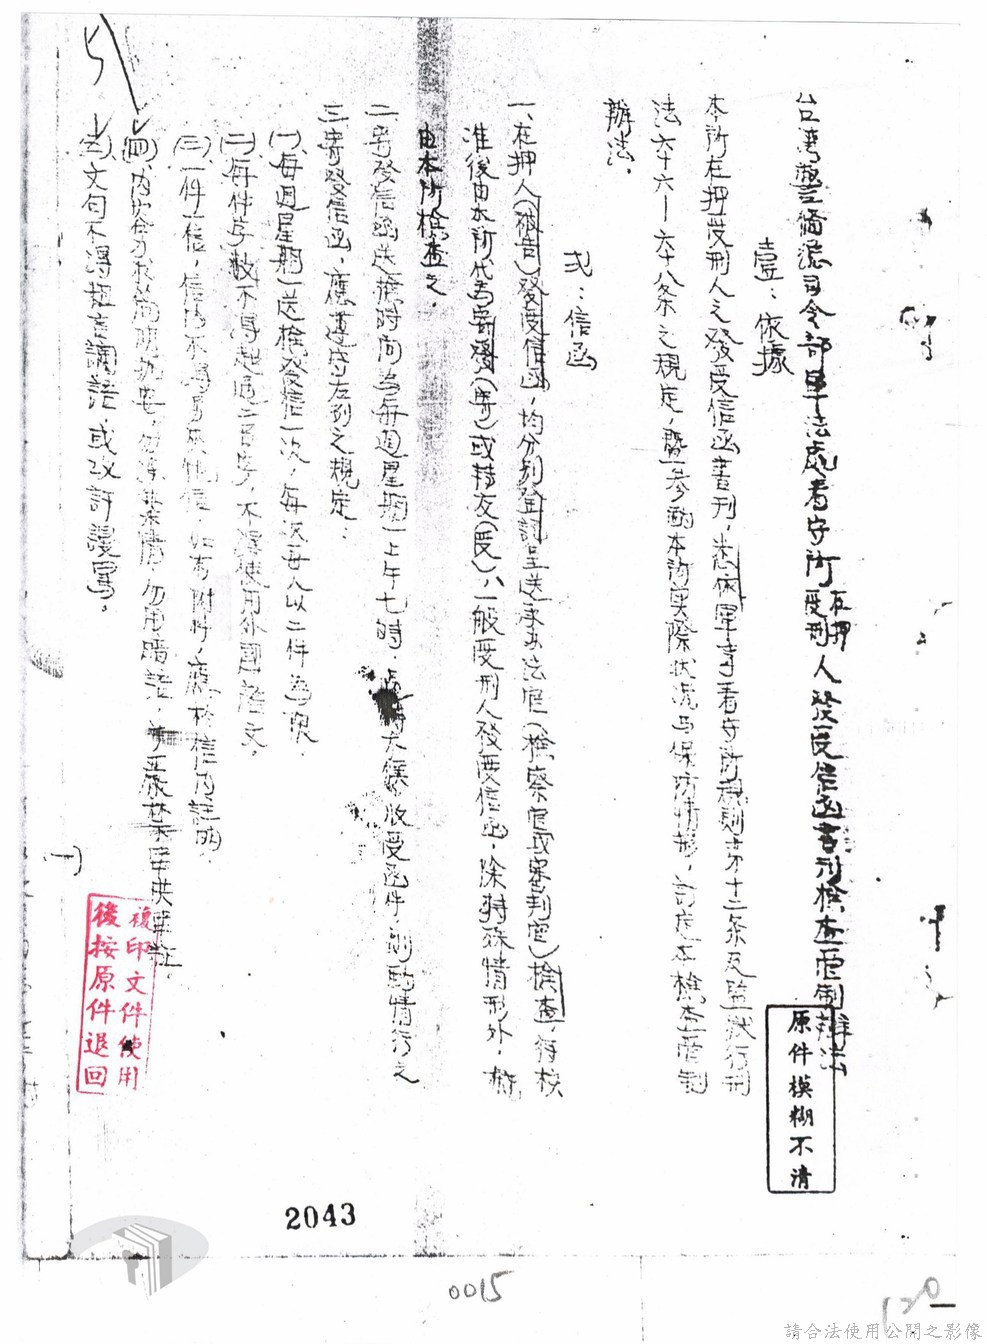 台湾警備總司令部軍法處看守所在押受刑人發受信函書刊檢查管制辦法
壹：依據
本所在押受刑人之發受信函書刊，悉依軍事看守所規則第十二条及監獄行刑
法六十六—六十八条之規定，暨参酌本所實際狀況与保防情形，訂定本檢查管制
辦法．
弍：信函
一、在押人(被告)發受信函，均分别登記呈送承办法官(檢察官或審判官)檢查，待核
准後由本所代為寄發(寄)或持友(受)、一般受刑人發受信函，除特殊情形外，概
由本所檢查之．
二、寄發信函送檢時间為每週星期一上午七時，大集收受函件，則酌情行之
三、寄發信函，應遵守左列之規定：
(一)、每週星期一送檢發信一次，每次每人以二件為限．
(二)、每件字数不得超過二百字，不得使用外國語文．
(三)、一件一信，信內不得另夾他信，如有附件，應於信內註明．
(四)、內容力求簡明扼要，勿用暗語，
(五)、文句不得粗言調語或攻訐謾罵．
(一)
複印文件使用
後按原件退回
原件模糊不清
2043
0015
120
請合法使用公開之影像